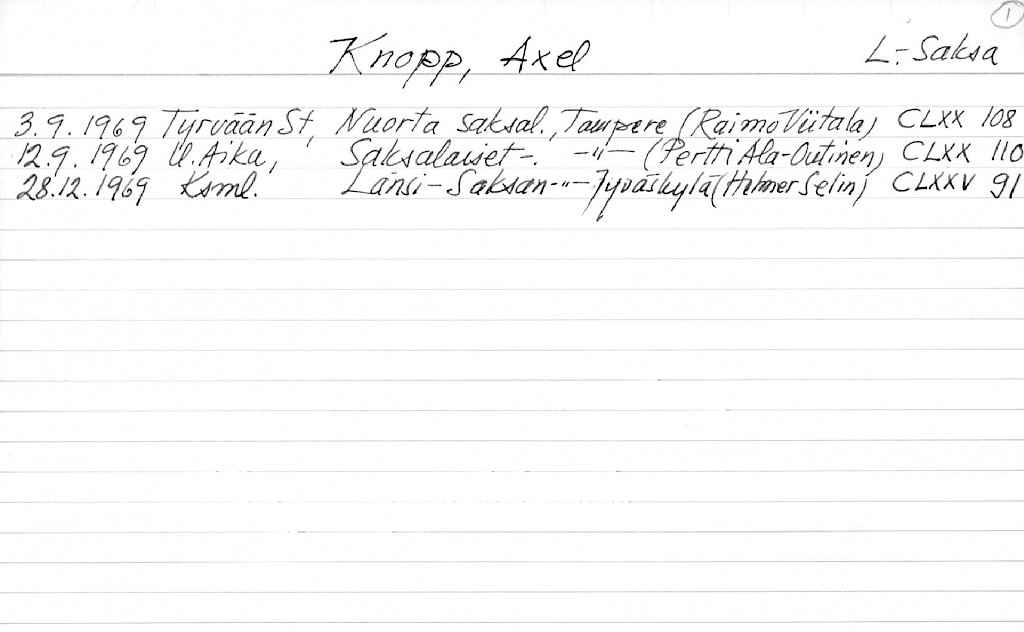 1
Knopp, Axel L.-Saksa
3.9.1969 Tyrvään St, Nuorta saksal., Tampere (Raimo Viitala) CLXX 108
12.9.1969 U. Aika, Saksalaiset -. -"- (Pertti Ala-Outinen) CLXX 110
28.12.1969 Ksml. Länsi-Saksan -"- Jyväskylä (Helmer Selin) CLXXV 91